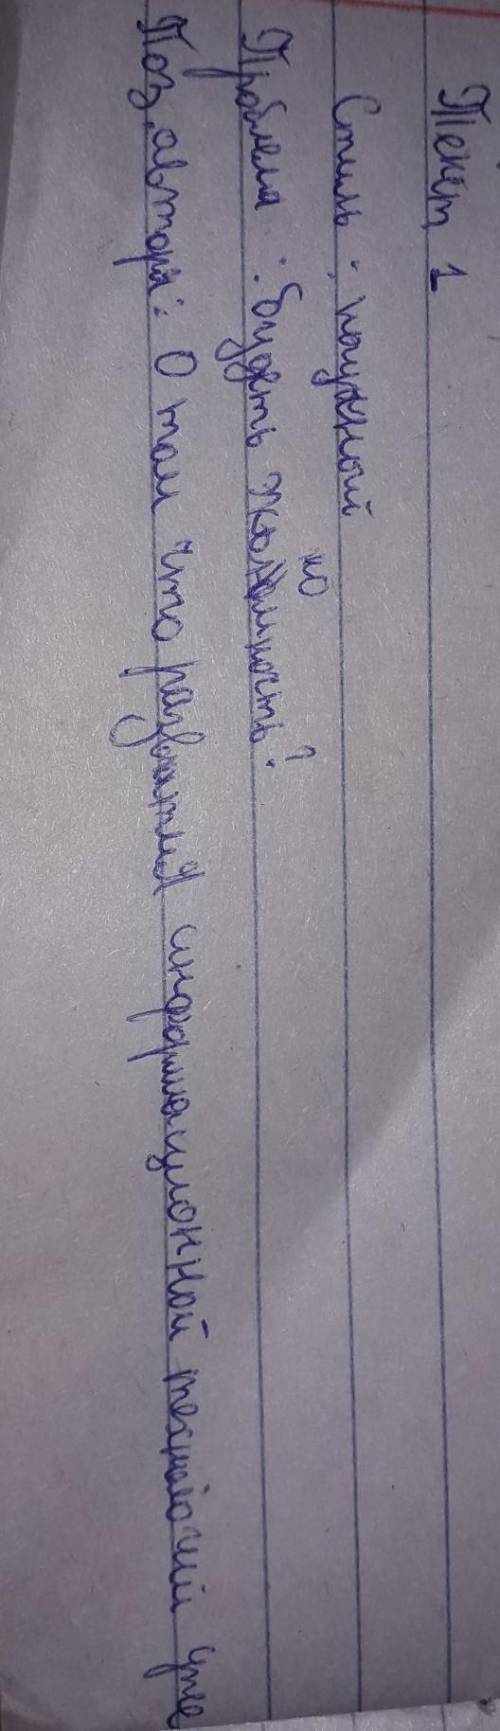 Текст 1
Стиль: научный
Проблема: Будеть экономность?
Поз. автора: О том что развития информационной технологий уже